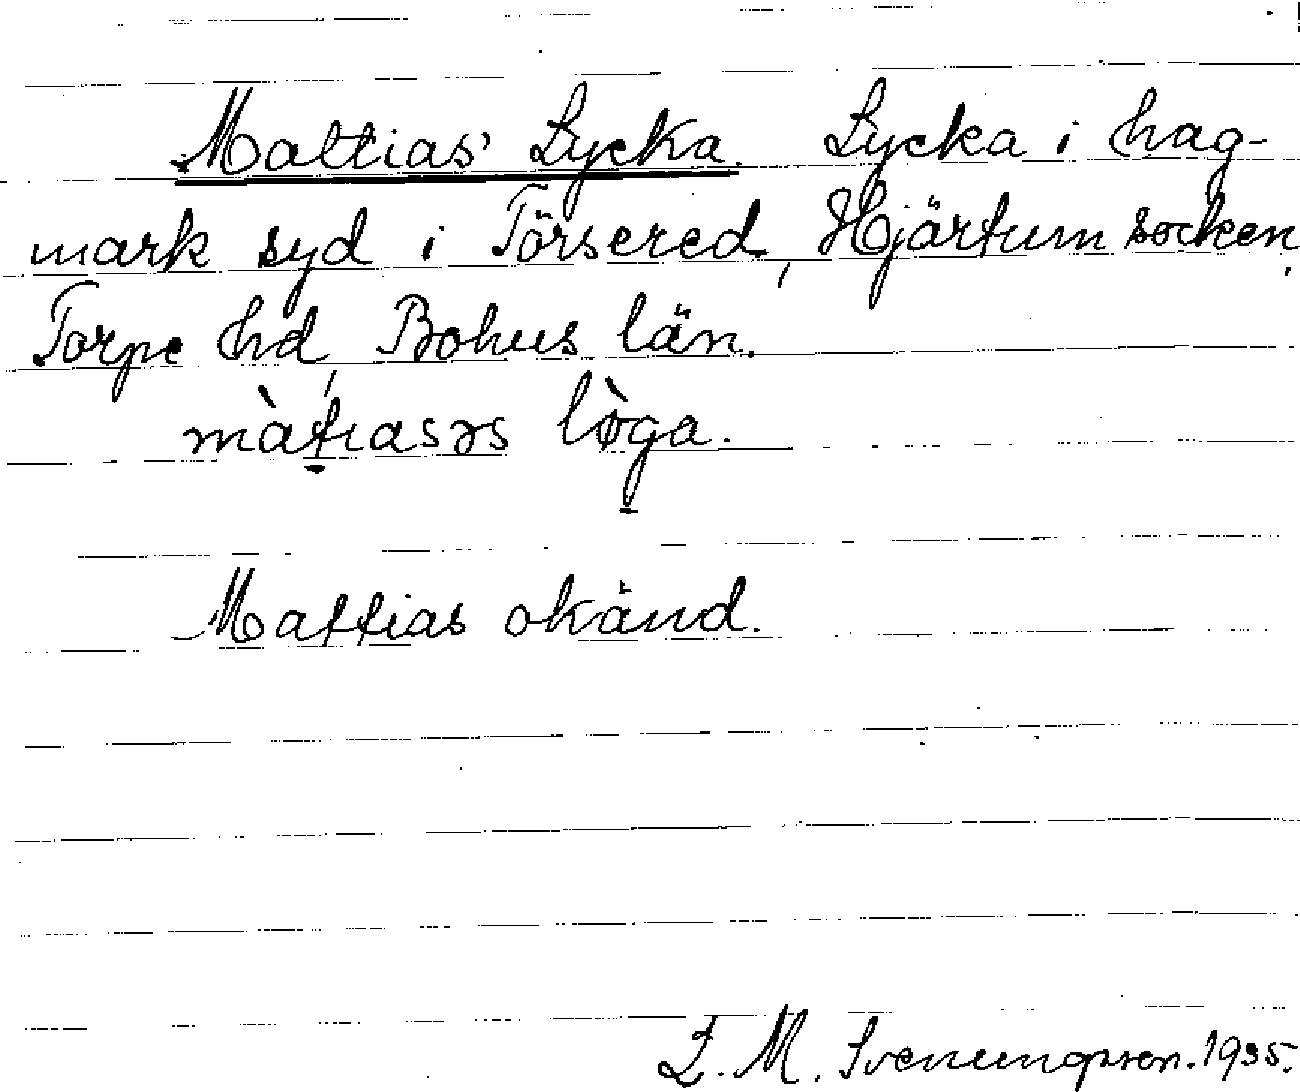 Mattias' Lycka. Lycka i hag-
mark syd i Törsered, Hjärtum socken,
Torpe hd, Bohus län.
màtiasəs lø̀ga.
Mattias okänd.
L. M. Svenungsson. 1935.